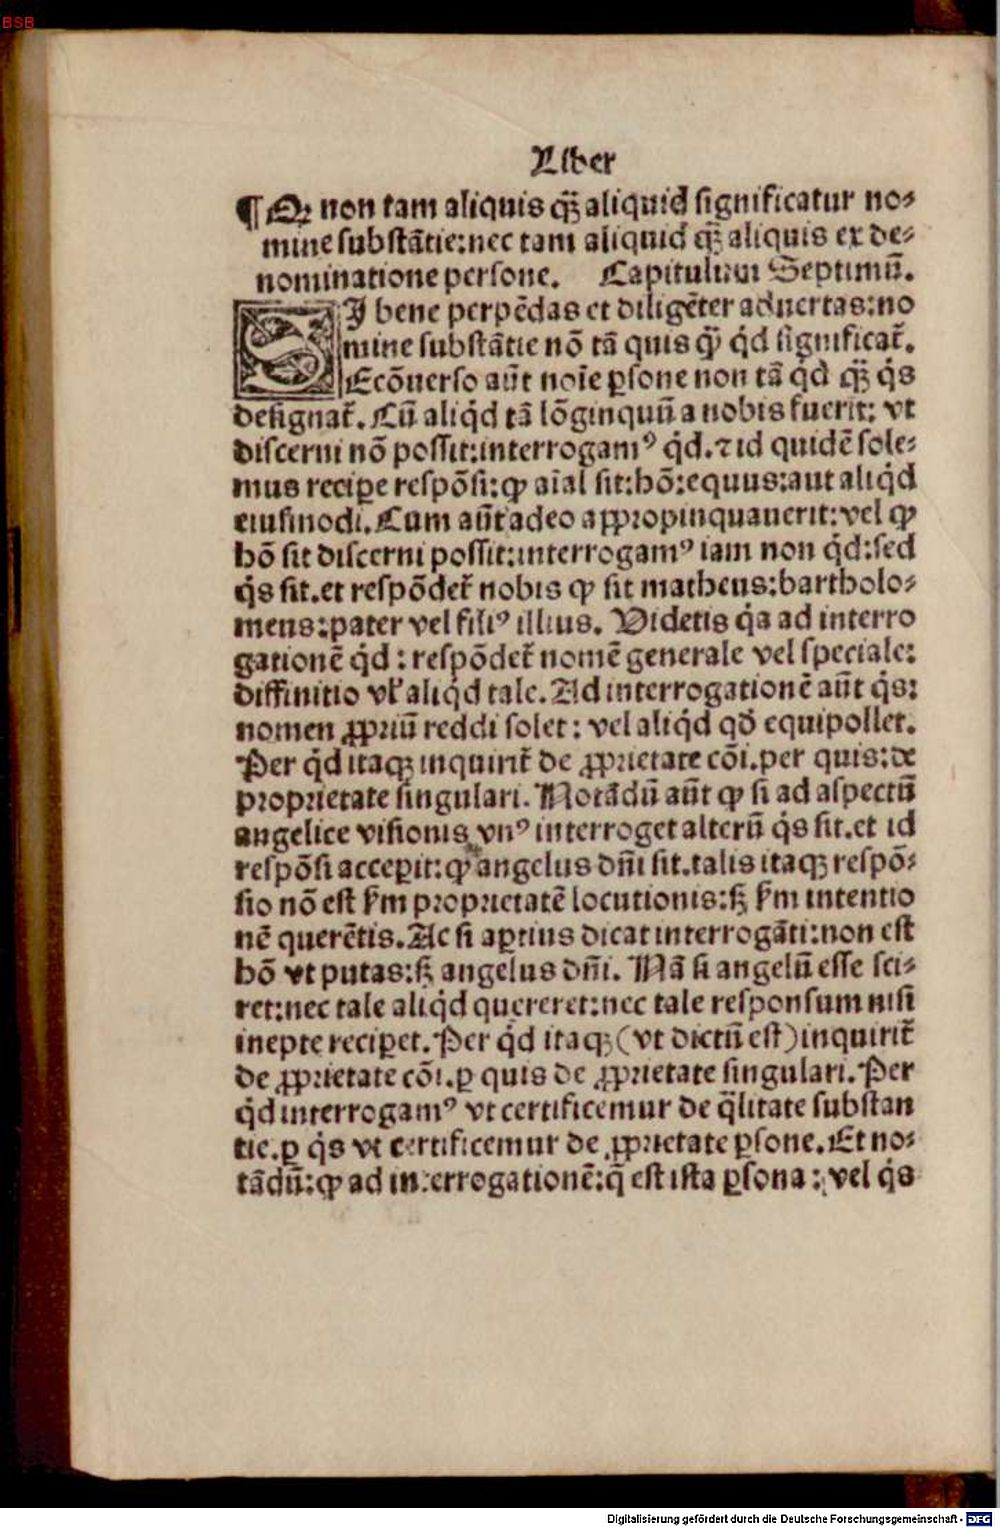 BSB
Liber
¶ Qꝛ non tam aliquis qꝫ̃ aliquid significatur no⸗
mine substãtie:nec tam aliquid qꝫ̃ aliquis ex de⸗
nominatione persone. Capitulum Septimũ.
SI bene perpẽdas et diligẽter aduertas:no
mine substãtie nõ tã quis qꝫ̃ qͥd significat̃.
Ecõuerso aũt noĩe ꝑsone non tã qͥd qꝫ̃ qͥs
designat̃. Cũ aliqͥd tã lõginquũ a nobis fuerit: vt
discerni nõ possit:interrogamꝰ qͥd.⁊ id quidẽ sole⸗
mus reciꝑe respõsi:ꝙ aĩal sit:hõ:equus:aut aliqͥd
eiusmodi. Cum aũt adeo aꝓpropinquauerit:vel ꝙ
hõ sit discerni possit:interrogamꝰ iam non qͥd:sed
qͥs sit.et respõdet̃ nobis ꝙ sit matheus:bartholo⸗
meus:pater vel filiꝰ illius. Videtis qͥa ad interro
gationẽ qͥd : respõdet̃ nomẽ generale vel speciale:
diffinitio vl̓ aliqͥd tale. Ad interrogationẽ aũt qͥs:
nomen ꝓpriũ reddi solet : vel aliqͥd qd̓ equipollet.
Per qͥd itaqꝫ inquirit̃ de ꝓprietate cõi.per quis:de
proprietate singulari. Notãdũ aũt ꝙ si ad aspectũ
angelice visionis vnꝰ interroget alterũ qͥs sit.et id
respõsi acceꝑit:ꝙ angelus dñi sit.talis itaqꝫ respõ⸗
sio nõ est ẜm proprietatẽ locutionis:sꝫ ẜm intentio
nẽ querẽtis. Ac si aꝑtius dicat interrogãti:non est
hõ vt putas:sꝫ angelus dñi. Nã si angelũ esse sci⸗
ret:nec tale aliqͥd quereret:nec tale responsum nisi
inepte reciꝑet. Per qͥd itaqꝫ (vt dictũ est) inquirit̃
de ꝓprietate cõi.ꝑ quis de ꝓprietate singulari. Per
qͥd interrogamꝰ vt certificemur de q̃litate substan
tie.ꝑ qͥs vt certificemur de ꝓprietate ꝑsone. Et no⸗
tãdũ:ꝙ ad interrogationẽ:q̃ est ista ꝑsona : vel qͥs
Digitalisierung gefördert durch die Deutsche Forschungsgemeinschaft - DFG